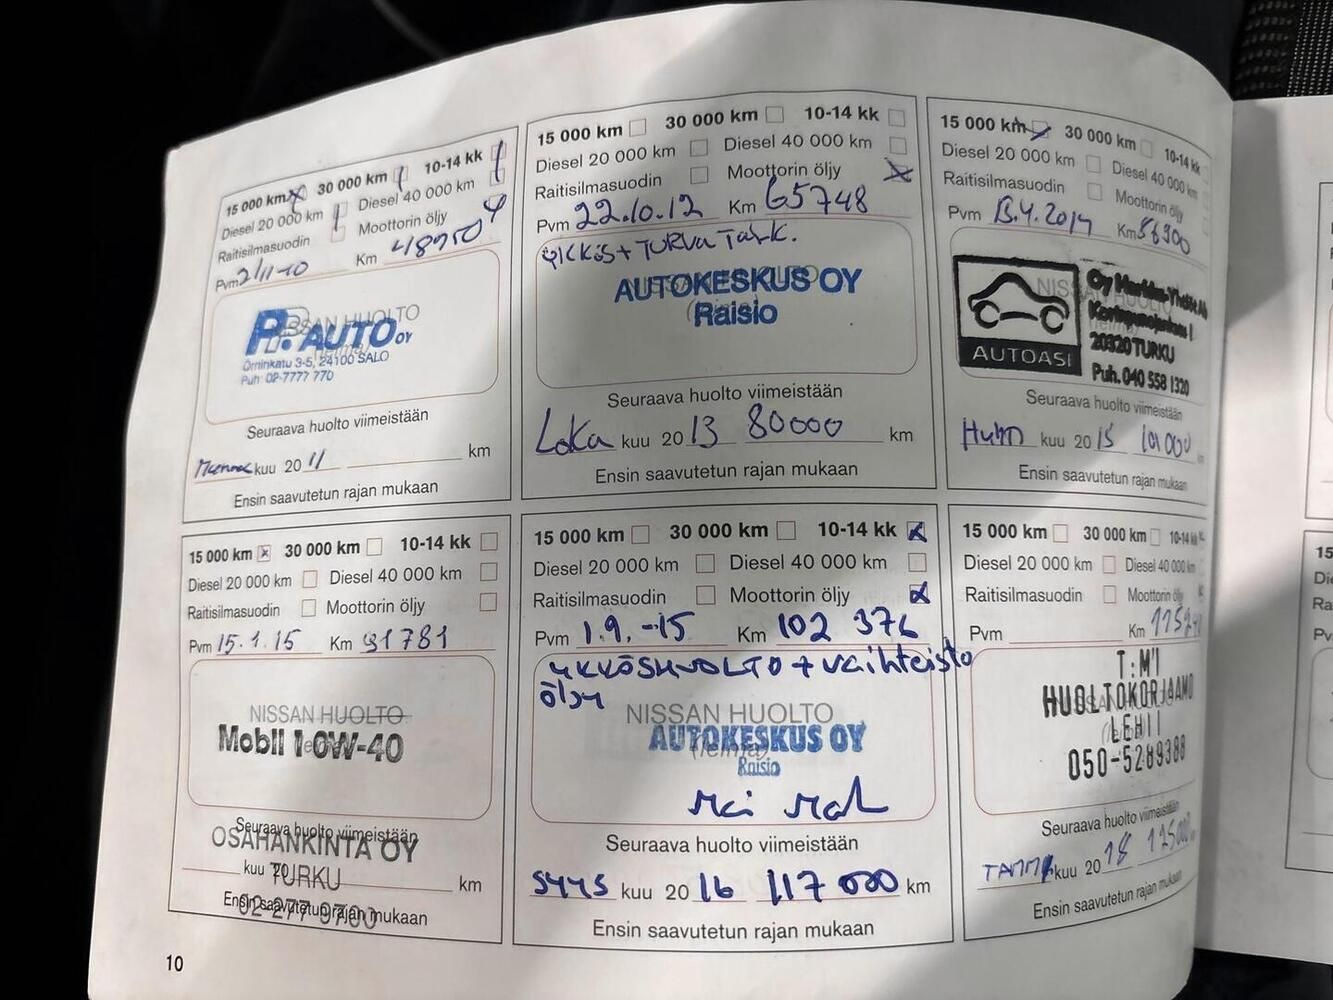 15 000 km 30 000 km 10-14 kk
Diesel 20 000 km Diesel 40 000 km
Raitisilmasuodin Moottorin öljy
Pvm 2/11-10 Km 48950
NISSAN HUOLTO
P.P. AUTO OY
(leima)
Örninkatu 3-5, 24100 SALO
Puh. 02-7777 770
Seuraava huolto viimeistään
kuu 20 11 km
Ensin saavutetun rajan mukaan
15 000 km 30 000 km 10-14 kk
Diesel 20 000 km Diesel 40 000 km
Raitisilmasuodin Moottorin öljy
Pvm 22.10.12 Km 65748
ykkös + TURVA Task.
NISSAN HUOLTO
AUTOKESKUS OY
(leima)
Raisio
Seuraava huolto viimeistään
Loka kuu 20 13 80000 km
Ensin saavutetun rajan mukaan
15 000 km 30 000 km 10-14 kk
Diesel 20 000 km Diesel 40 000 km
Raitisilmasuodin Moottorin öljy
Pvm 13.4.2014 Km 86300
NISSAN HUOLTO
AUTOASI
20320 TURKU
Puh. 040 558 1320
Seuraava huolto viimeistään
Huhti kuu 20 15 101000 km
Ensin saavutetun rajan mukaan
15 000 km 30 000 km 10-14 kk
Diesel 20 000 km Diesel 40 000 km
Raitisilmasuodin Moottorin öljy
Pvm 15.1.15 Km 91781
NISSAN HUOLTO
(leima)
Mobil 1 0W-40
Seuraava huolto viimeistään
OSAHANKINTA OY
kuu 20 km
TURKU
Ensin saavutetun rajan mukaan
02-277 0700
15 000 km 30 000 km 10-14 kk
Diesel 20 000 km Diesel 40 000 km
Raitisilmasuodin Moottorin öljy
Pvm 1.9.-15 Km 102 376
YKKÖSHUOLTO + vaihteisto
öljy
NISSAN HUOLTO
AUTOKESKUS OY
(leima)
Raisio
Seuraava huolto viimeistään
SYYS kuu 20 16 117 000 km
Ensin saavutetun rajan mukaan
15 000 km 30 000 km 10-14 kk
Diesel 20 000 km Diesel 40 000 km
Raitisilmasuodin Moottorin öljy
Pvm Km
T:MI
HUOLTOKORJAAMO
LEHTI
050-5289388
Seuraava huolto viimeistään
TAMMI kuu 20 18 125000
Ensin saavutetun rajan mukaan
10